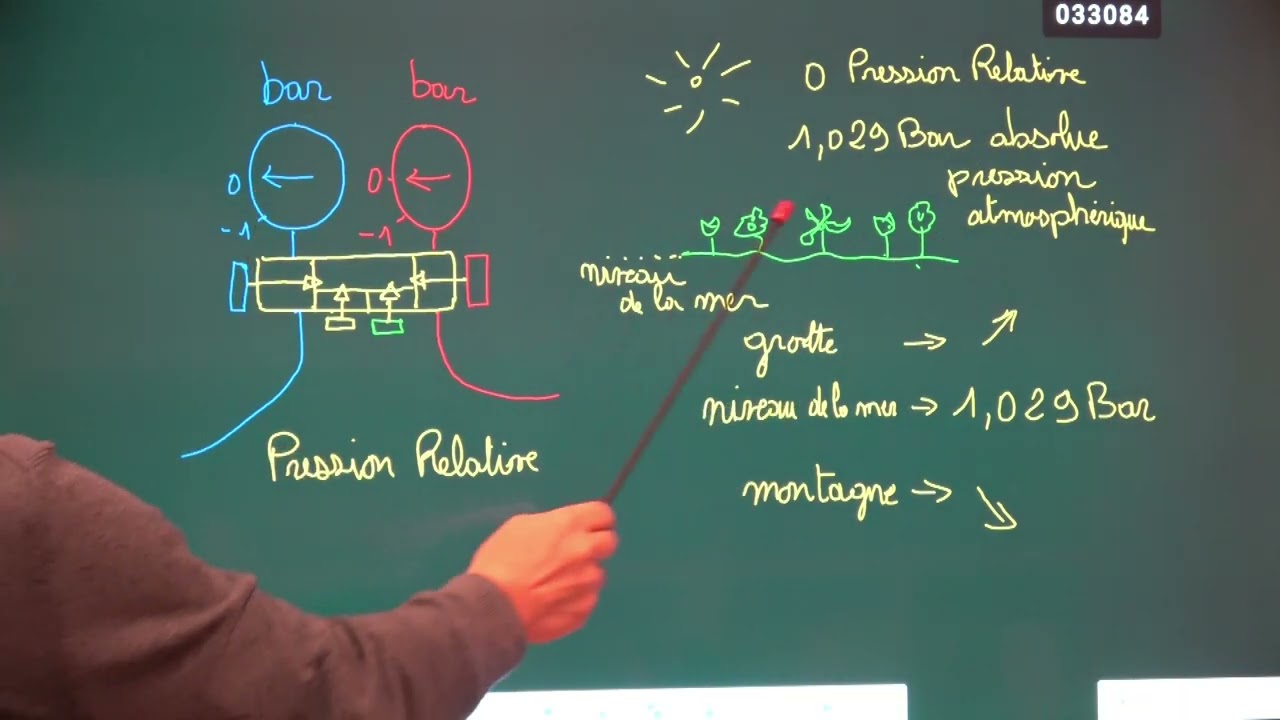 033084
bar
bar
0
0
-1
-1
Pression Relative
0 Pression Relative
1,029 Bar absolue
pression
atmosphérique
niveau
de la mer
grotte → ↗
niveau de la mer → 1,029 Bar
montagne → ↘